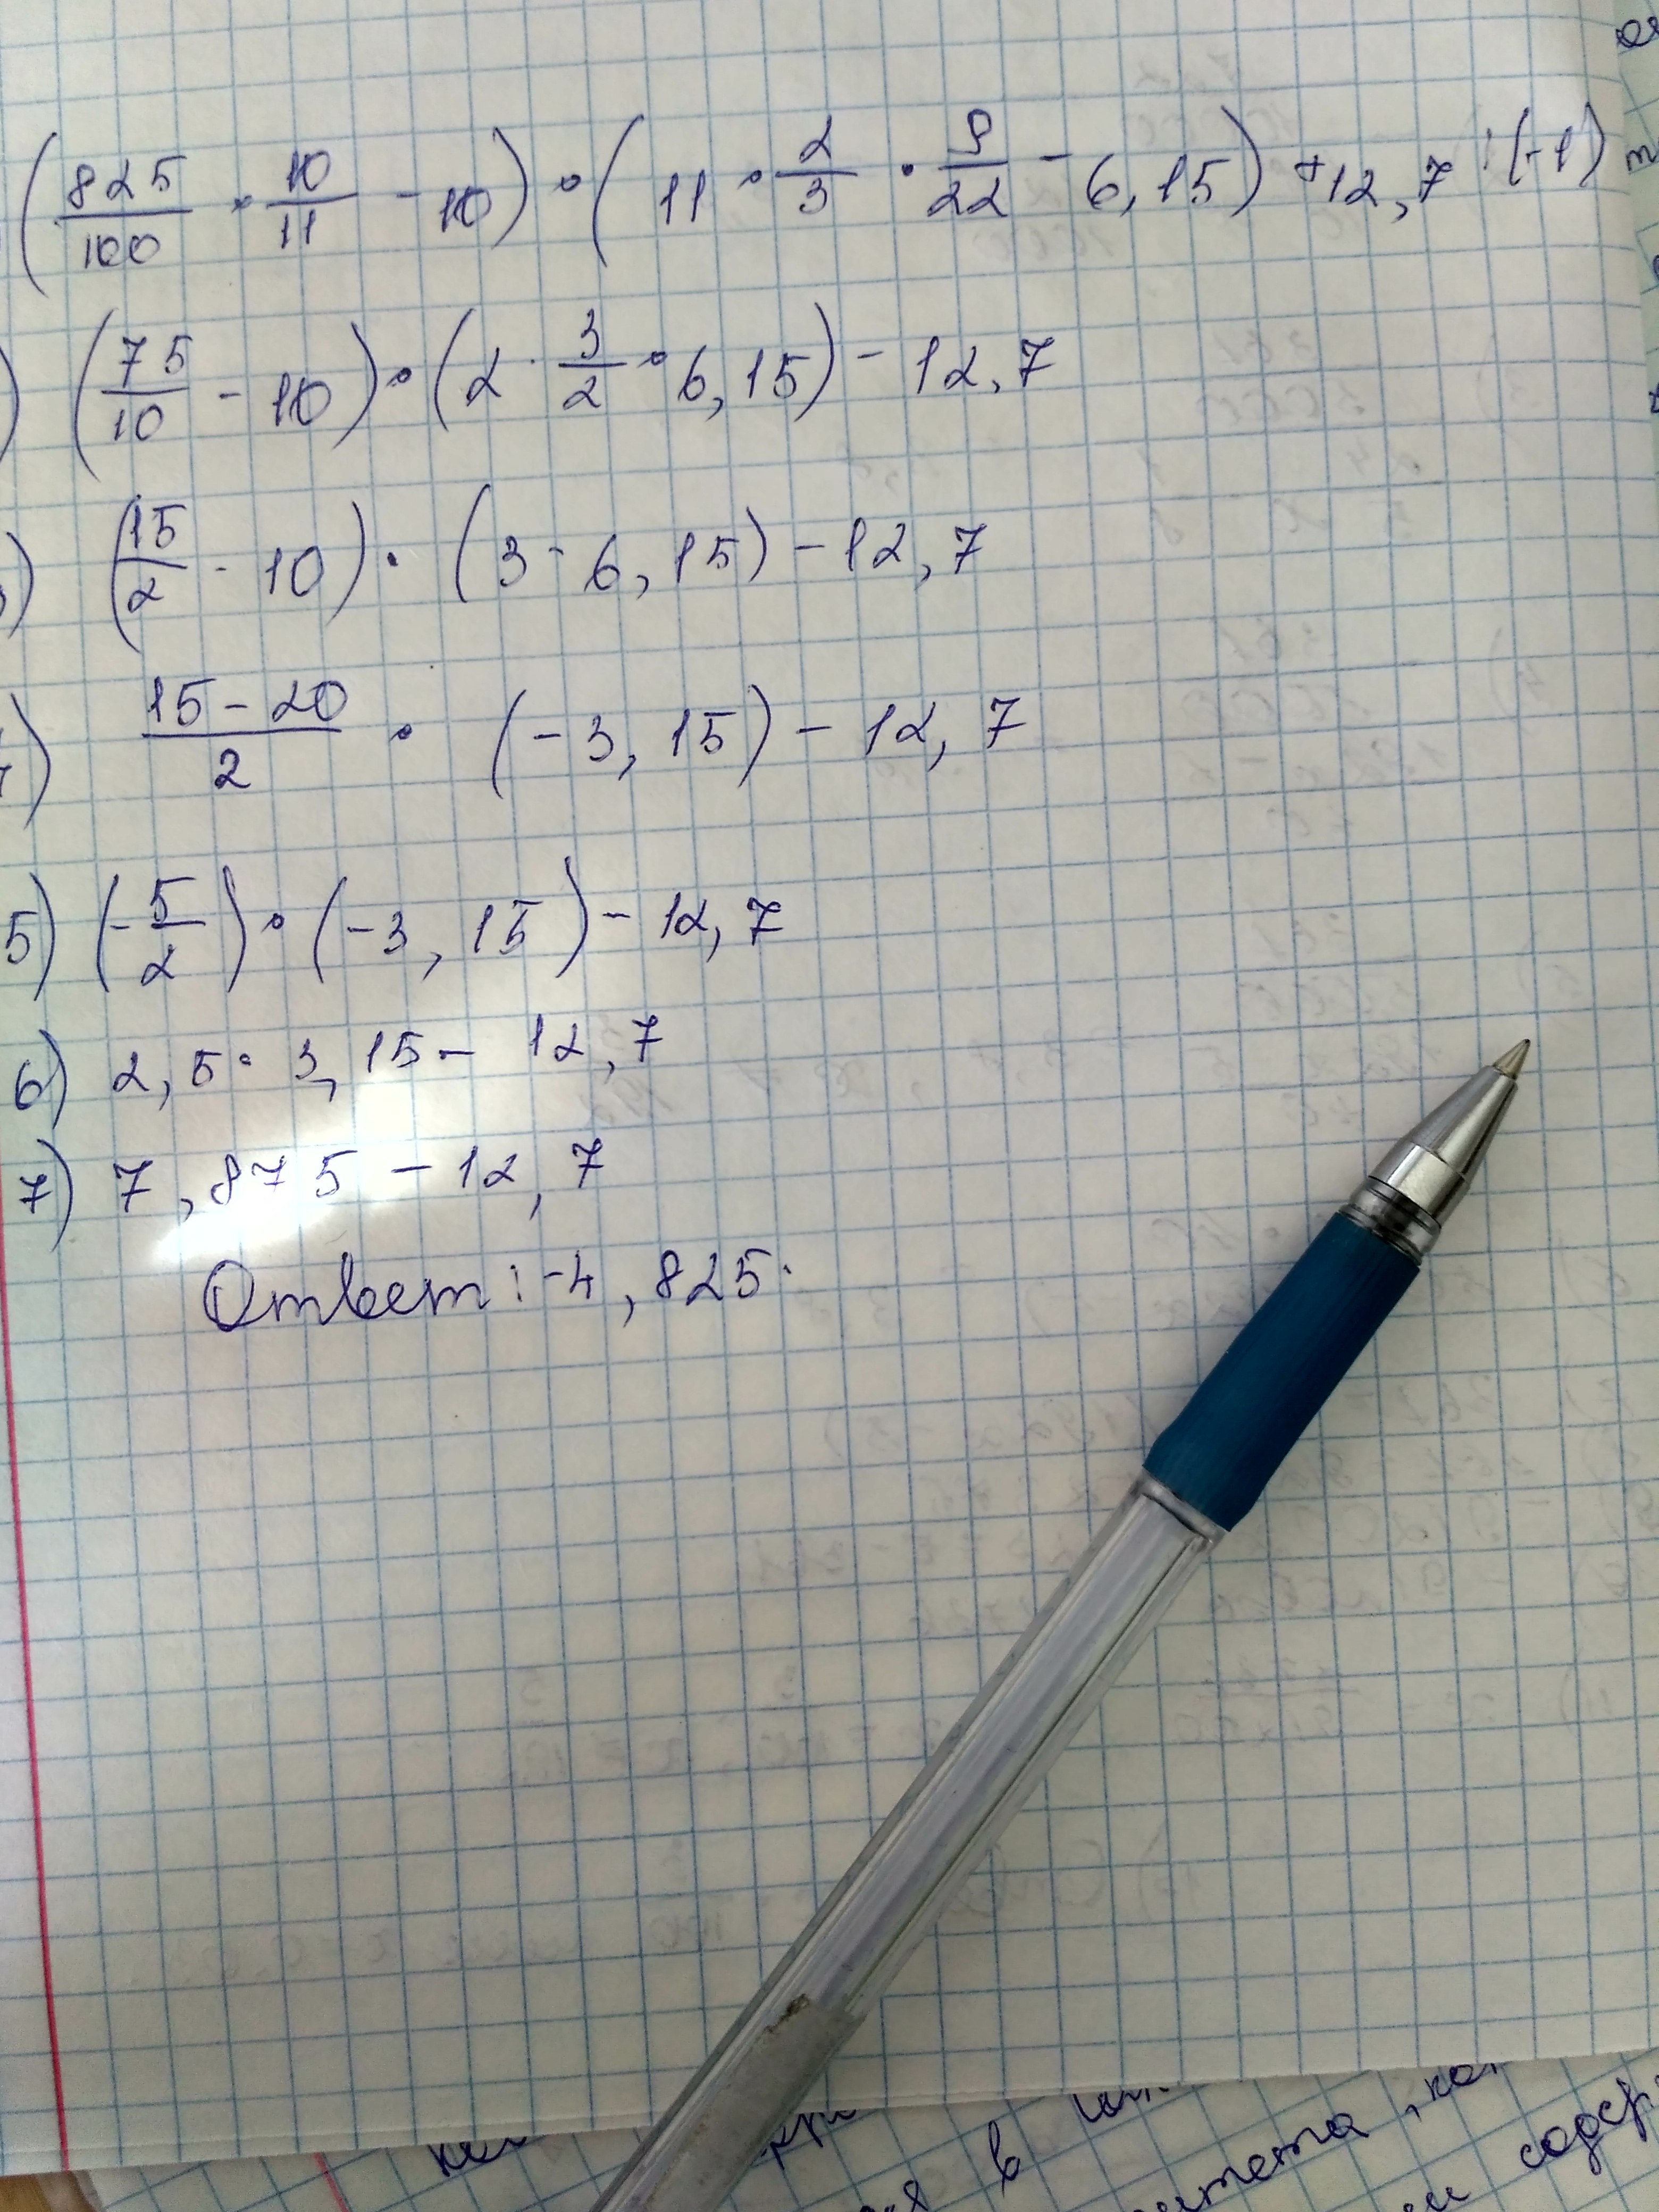 (825/100 · 10/11 - 10) · (11 · 2/3 · 9/22 - 6,15) + 12,7 : (-1)
) (75/10 - 10) · (2 · 3/2 · 6,15) - 12,7
) (15/2 - 10) · (3 - 6,15) - 12,7
) 15 - 20/2 · (-3,15) - 12,7
5) (-5/2) · (-3,15) - 12,7
6) 2,5 · 3,15 - 12,7
7) 7,875 - 12,7
Ответ: -4,825.